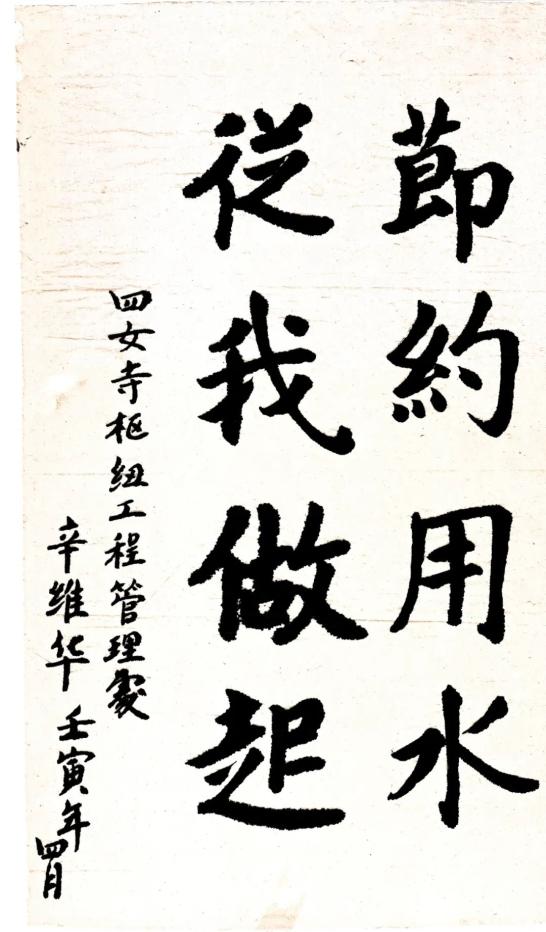 節約用水
從我做起
四女寺枢紐工程管理處
辛維华 壬寅年
四月